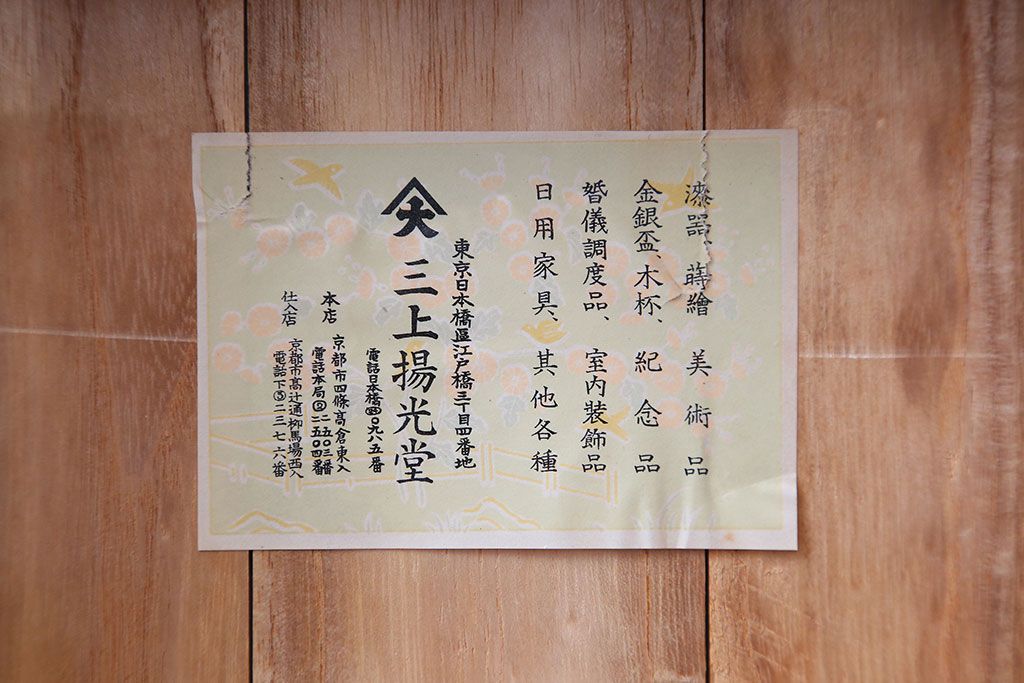 漆器、蒔繪 美術品
金銀盃、木杯、紀念品
婚儀調度品、室内裝飾品
日用家具、其他各種
東京日本橋區江戸橋三丁目四番地
大 三上揚光堂
電話日本橋㈣〇九八五番
本店 京都市四條高倉東入
電話本局②二五〇三番
二五〇四番
仕入店 京都市高辻通柳馬場西入
電話下⑤二三七六番